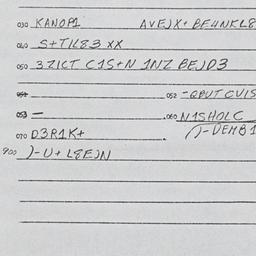 030 KANOP1 AVE)X+ BE4NKL8
040 S+TIL83 XX
050 3ZICT C1S+N 1NZ BEJD3
051 052 -GPUT CVIS
053 — .060 N1SHOLC
070 D3R1K+ . /)-DEMB1
900 )-U+L8E)N